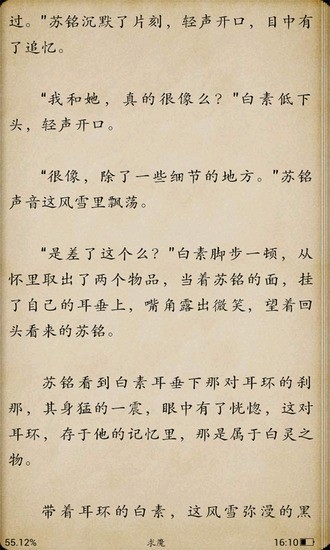 过。”苏铭沉默了片刻，轻声开口，目中有
了追忆。
“我和她，真的很像么？”白素低下
头，轻声开口。
“很像，除了一些细节的地方。”苏铭
声音这风雪里飘荡。
“是差了这个么？”白素脚步一顿，从
怀里取出了两个物品，当着苏铭的面，挂
了自己的耳垂上，嘴角露出微笑，望着回
头看来的苏铭。
苏铭看到白素耳垂下那对耳环的刹
那，其身猛的一震，眼中有了恍惚，这对
耳环，存于他的记忆里，那是属于白灵之
物。
带着耳环的白素，这风雪弥漫的黑
55.12% 求魔 16:10